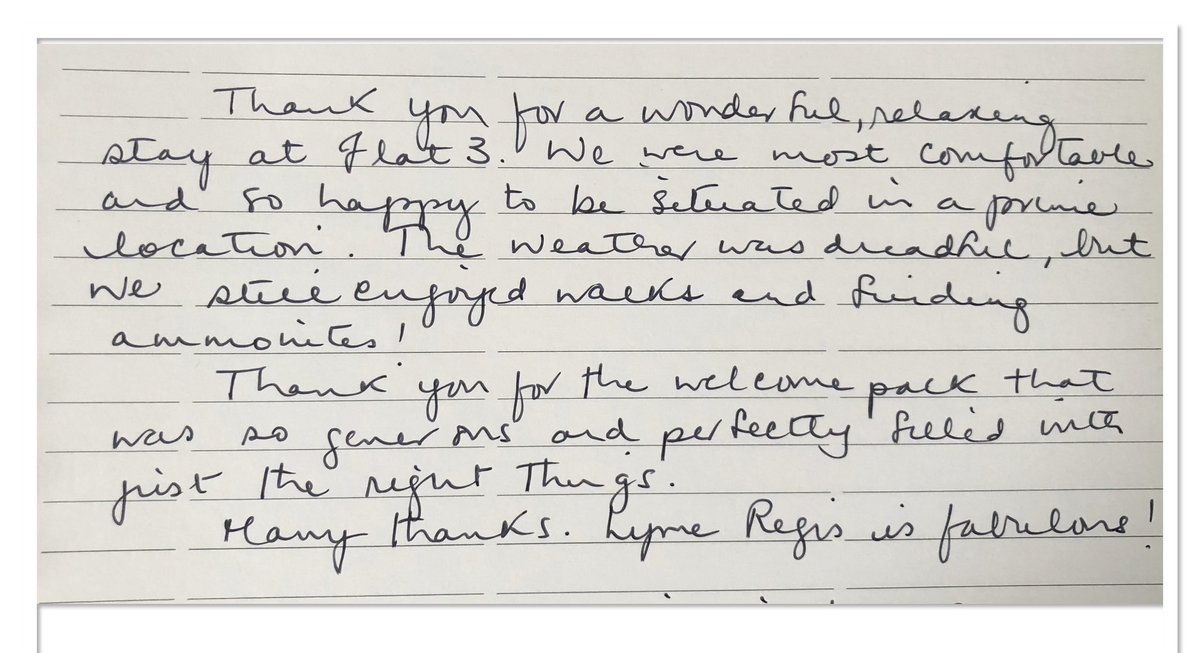 Thank you for a wonderful, relaxing
stay at Flat 3. We were most comfortable
and so happy to be situated in a prime
location. The weather was dreadful, but
we still enjoyed walks and finding
ammonites!
Thank you for the welcome pack that
was so generous and perfectly filled with
just the right things.
Many thanks. Lyme Regis is fabulous!